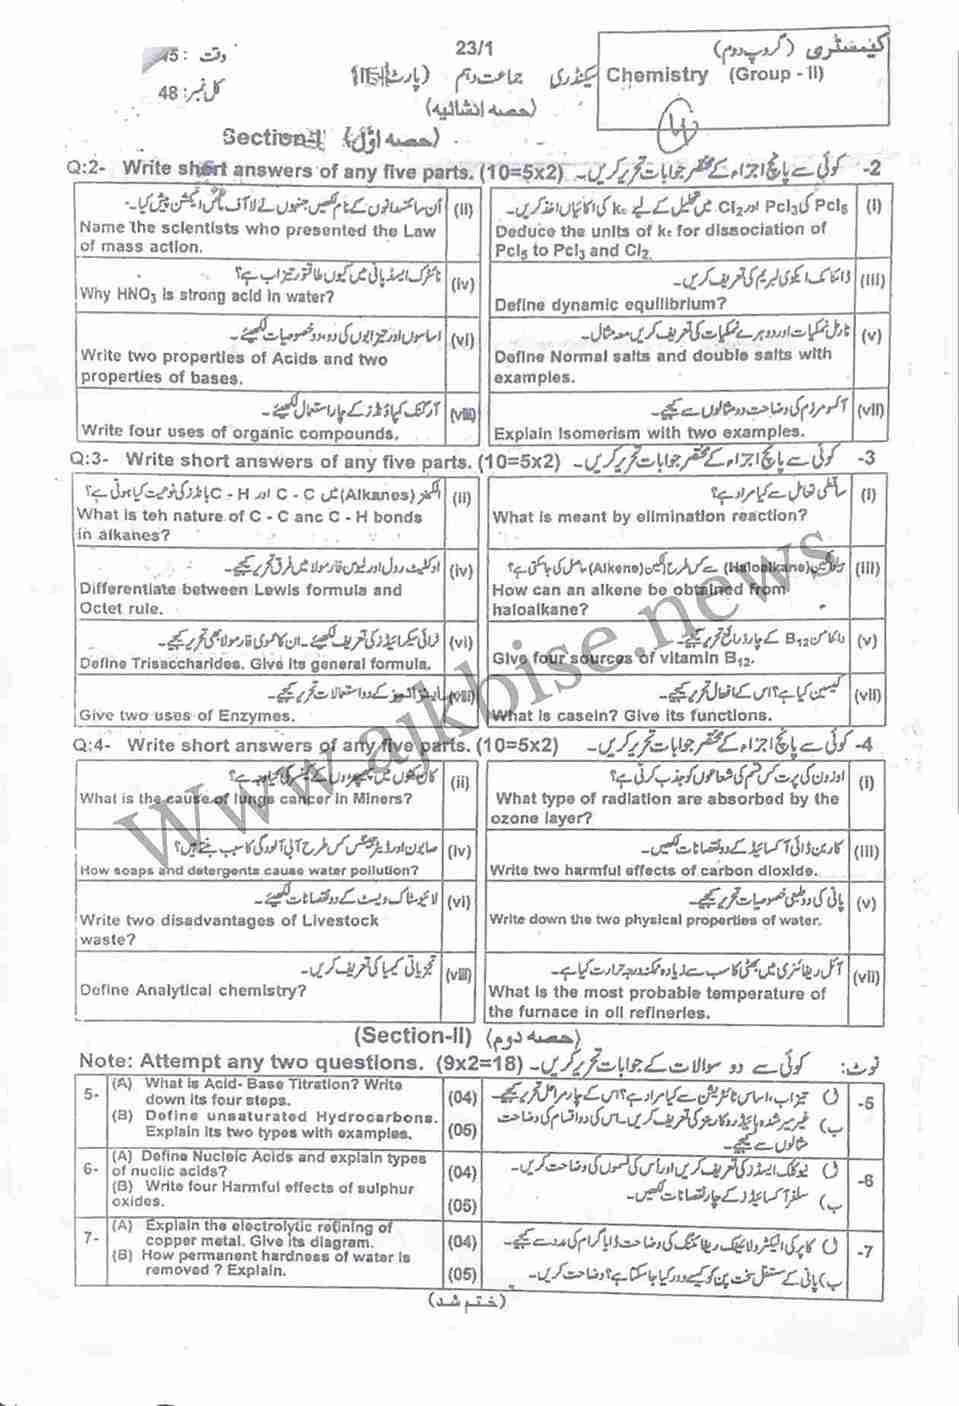 23/1
کیمسٹری (گروپ دوم)
وقت :
کل نمبر: 48
جماعت دہم
Chemistry (Group - II)
(حصہ انشائیہ)
Section-I (حصہ اوّل)
Q:2- Write short answers of any five parts. (10=5x2) کوئی سے پانچ اجزاء کے مختصر جوابات تحریر کریں۔ -2
(i) PCl5 کی PCl3 اور Cl2 میں تحلیل کے لیے kc کی اکائیاں اخذ کریں۔
Deduce the units of kc for dissociation of
Pcl5 to Pcl3 and Cl2.
(ii) اُن سائنسدانوں کے نام لکھیں جنہوں نے لاء آف ماس ایکشن پیش کیا۔
Name the scientists who presented the Law
of mass action.
(iii) ڈائنامک ایکوی لبریم کی تعریف کریں۔
Define dynamic equilibrium?
(iv) نائٹرک ایسڈ پانی میں کیوں طاقتور تیزاب ہے؟
Why HNO3 is strong acid in water?
(v) نارمل نمکیات اور دوہرے نمکیات کی تعریف کریں معہ مثال۔
Define Normal salts and double salts with
examples.
(vi) اساسوں اور تیزابوں کی دو، دو خصوصیات لکھیئے۔
Write two properties of Acids and two
properties of bases.
(vii) آئسومرزم کی وضاحت دو مثالوں سے کیجیے۔
Explain Isomerism with two examples.
(viii) آرگینک کمپاؤنڈز کے چار استعمال لکھیئے۔
Write four uses of organic compounds.
Q:3- Write short answers of any five parts. (10=5x2) کوئی سے پانچ اجزاء کے مختصر جوابات تحریر کریں۔ -3
(i) تعامل سے کیا مراد ہے؟
What is meant by elimination reaction?
(ii) الکینز (Alkanes) میں C - C اور C - H بانڈز کی نوعیت کیا ہوتی ہے؟
What is teh nature of C - C anc C - H bonds
in alkanes?
(iii) (Haloalkane) سے کس طرح الکین (Alkene) حاصل کی جا سکتی ہے؟
How can an alkene be obtained from
haloalkane?
(iv) اوکٹیٹ رول اور لیوس فارمولا میں فرق تحریر کیجیے۔
Differentiate between Lewis formula and
Octet rule.
(v) وٹامن B12 کے چار ذرائع تحریر کیجیے۔
Give four sources of vitamin B12.
(vi) ٹرائی سیکرائیڈز کی تعریف لکھیئے۔ ان کا عمومی فارمولا بھی تحریر کیجیے۔
Define Trisaccharides. Give its general formula.
(vii) کیسین کیا ہے؟ اس کے افعال تحریر کیجیے۔
What is casein? Give its functions.
(viii) اینزائمز کے دو استعمالات تحریر کیجیے۔
Give two uses of Enzymes.
Q:4- Write short answers of any five parts. (10=5x2) کوئی سے پانچ اجزاء کے مختصر جوابات تحریر کریں۔ -4
(i) اوزون کی پرت کس قسم کی شعاعوں کو جذب کرتی ہے؟
What type of radiation are absorbed by the
ozone layer?
(ii) کان کنوں میں پھیپھڑوں کے کینسر کی کیا وجہ ہے؟
What is the cause of lungs cancer in Miners?
(iii) کاربن ڈائی آکسائیڈ کے دو نقصانات لکھیں۔
Write two harmful effects of carbon dioxide.
(iv) صابون اور ڈیٹرجینٹس کس طرح آبی آلودگی کا سبب بنتے ہیں؟
How soaps and detergents cause water pollution?
(v) پانی کی دو طبعی خصوصیات تحریر کیجیے۔
Write down the two physical properties of water.
(vi) لائیوسٹاک ویسٹ کے دو نقصانات لکھیئے۔
Write two disadvantages of Livestock
waste?
(vii) آئل ریفائنری میں بھٹی کا سب سے زیادہ ممکنہ درجہ حرارت کیا ہے۔
What is the most probable temperature of
the furnace in oil refineries.
(viii) تجزیاتی کیمیا کی تعریف کریں۔
Define Analytical chemistry?
(Section-II) (حصہ دوم)
Note: Attempt any two questions. (9x2=18) نوٹ: کوئی سے دو سوالات کے جوابات تحریر کریں۔
5- (A) What is Acid- Base Titration? Write
down its four steps. (04)
(B) Define unsaturated Hydrocarbons.
Explain its two types with examples. (05)
-5 (ا) تیزاب، اساس ٹائٹریشن سے کیا مراد ہے؟ اس کے چار مراحل تحریر کیجیے۔
ب) غیر سیر شدہ ہائیڈروکاربنز کی تعریف کریں۔ اس کی دو اقسام کی وضاحت
مثالوں سے کیجیے۔
6- (A) Define Nucleic Acids and explain types
of nuclic acids? (04)
(B) Write four Harmful effects of sulphur
oxides. (05)
-6 (ا) نیوکلک ایسڈز کی تعریف کریں اور اُس کی قسموں کی وضاحت کریں۔
ب) سلفر آکسائیڈز کے چار نقصانات لکھیں۔
7- (A) Explain the electrolytic refining of
copper metal. Give its diagram. (04)
(B) How permanent hardness of water is
removed ? Explain. (05)
-7 (ا) کاپر کی الیکٹرولائیٹک ریفائننگ کی وضاحت ڈایا گرام کی مدد سے کیجیے۔
ب) پانی کے مستقل سخت پن کو کیسے دور کیا جا سکتا ہے؟ وضاحت کریں۔
(ختم شد)
www.ajkbise.news